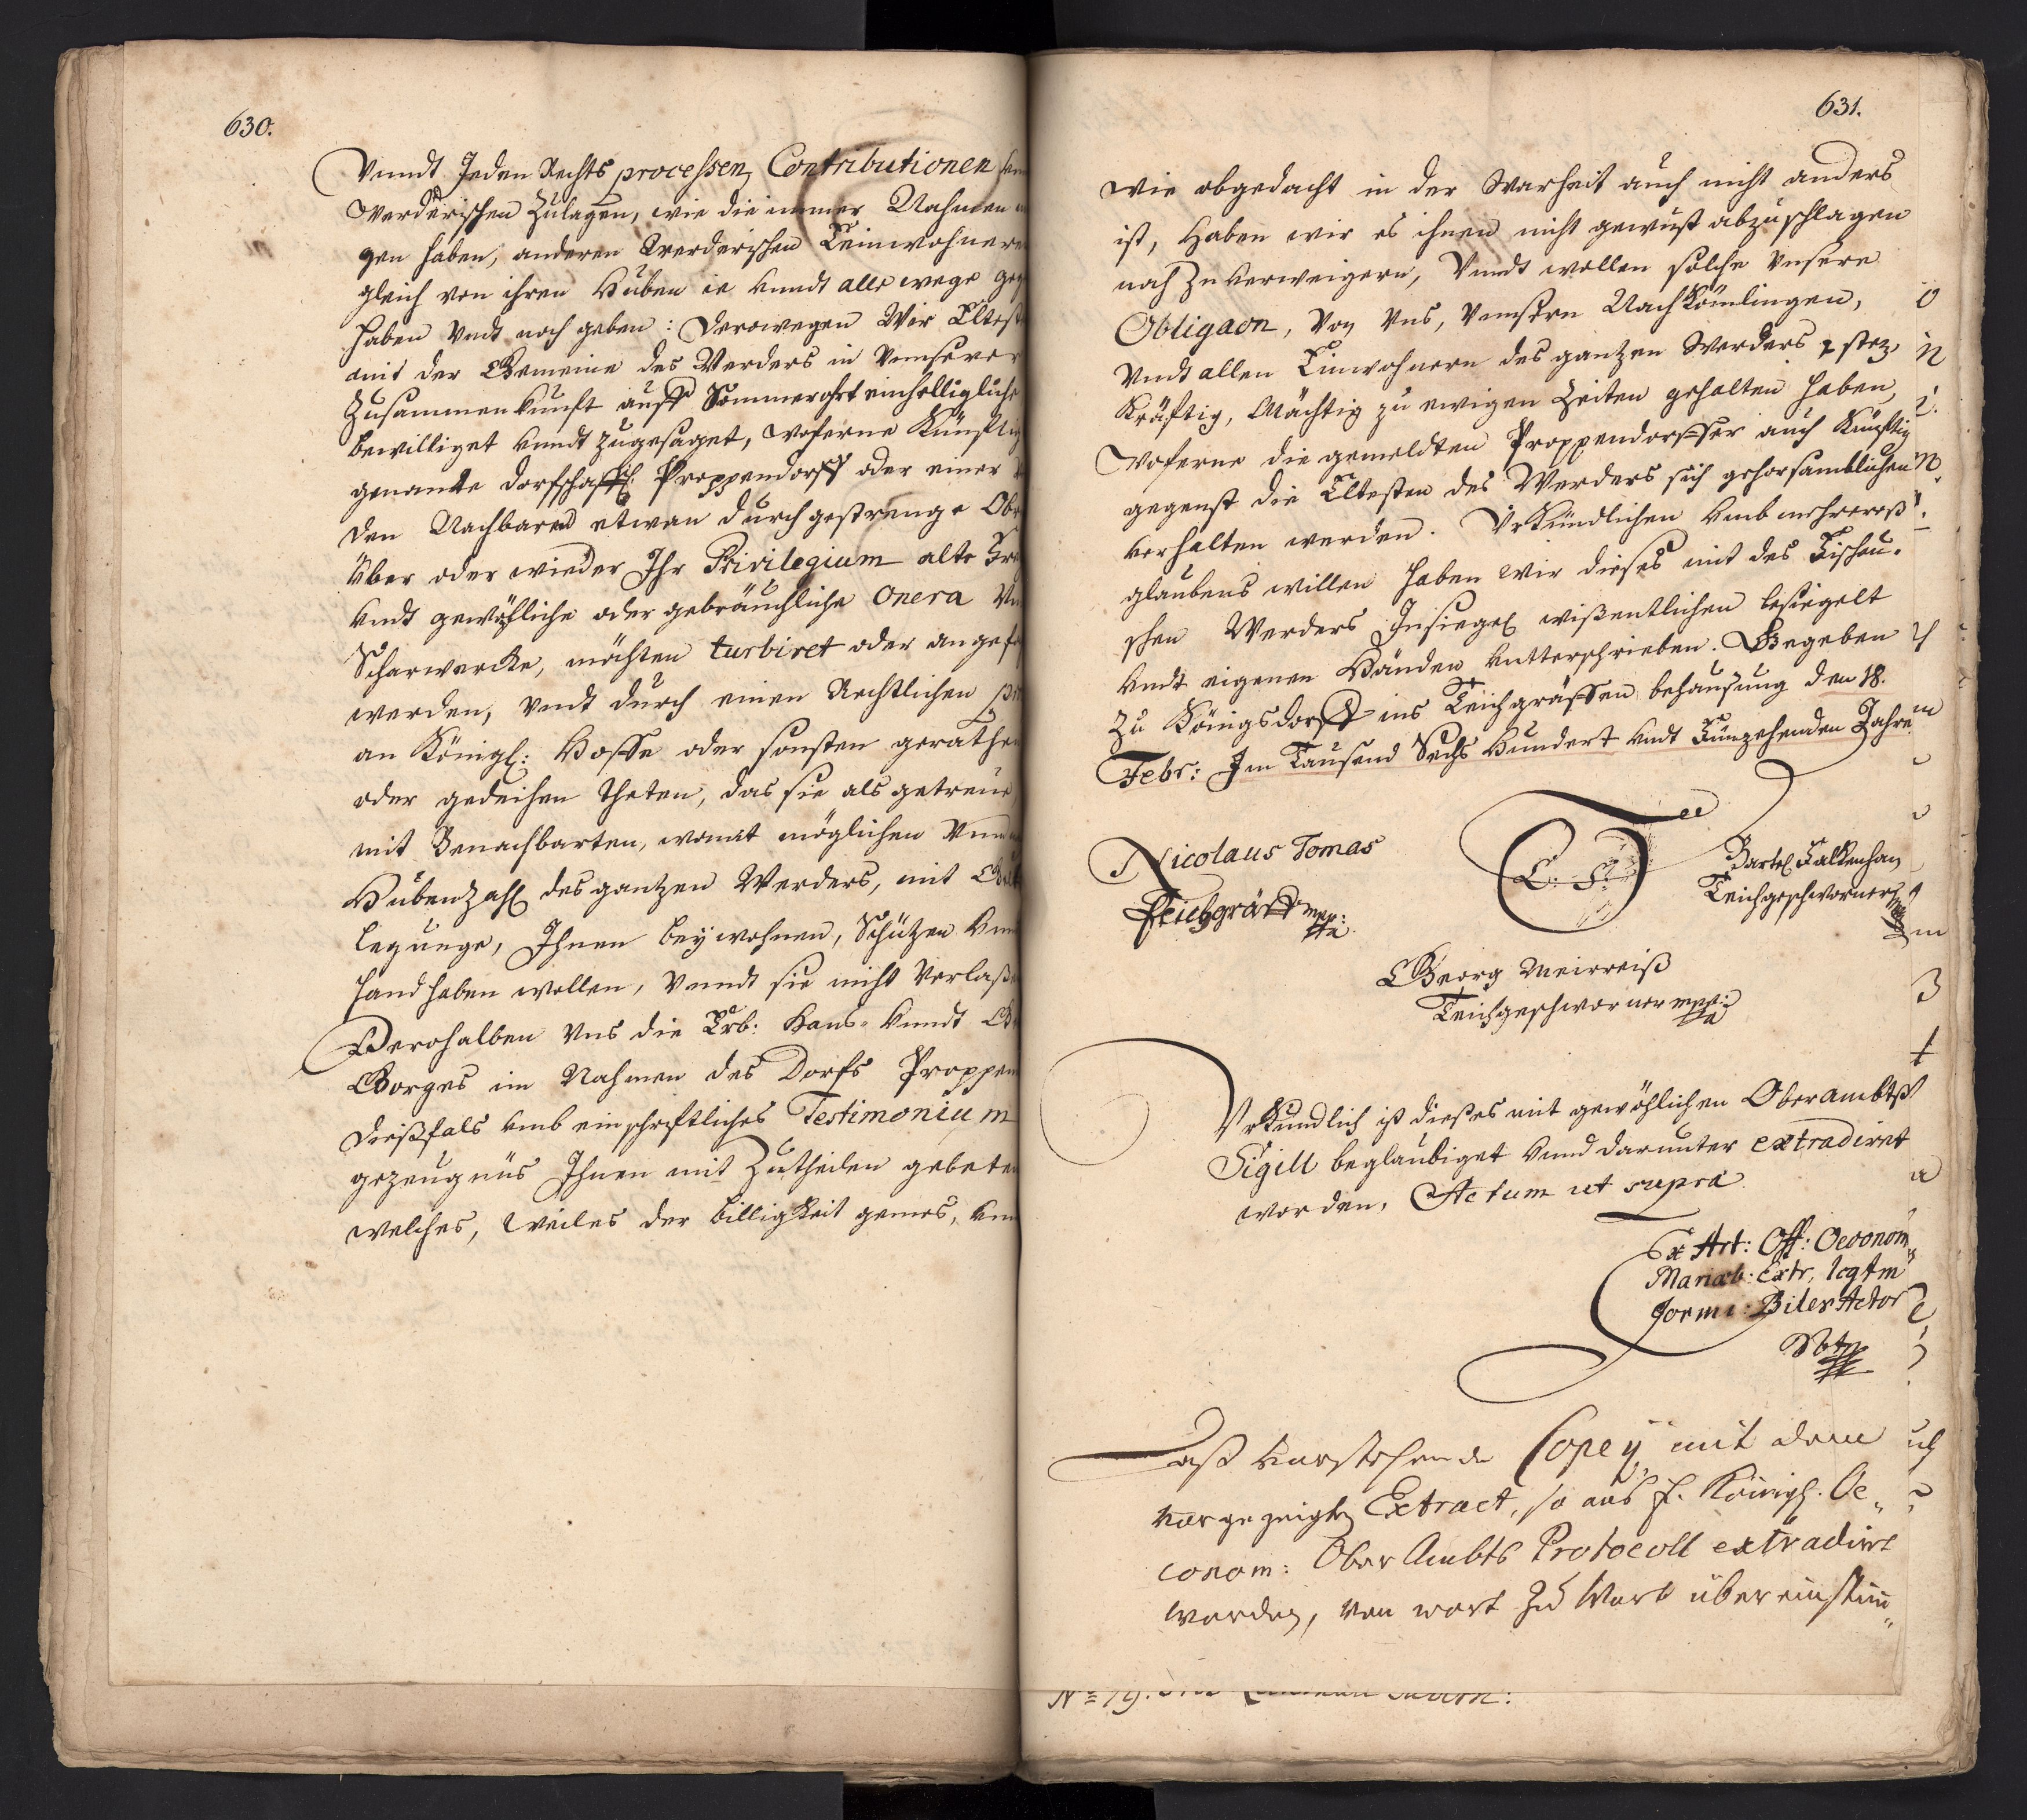 630.
Vundt Jeden Rechts processen, Contributionen
Werderischen Zulagen, wie die immer Nahmen
gen haben, anderen Werderischen Einwohnern
gleich von ihren Huben ie vundt alle wege
haben Vndt noch geben: Derowegen Wir Eltest
mit der Gemeine des Werders in Vnnserer
Zusammenkunfft auff Sommerohrt einhelligliche
bewilliget vundt zugesaget, woferne Künfftig
genante dorfschafft Proppendorff oder einer
den Nachbaren etwan durch gestrenge Obr
über oder wieder Ihr Privilegium alte
vndt gewöhliche oder gebräuchliche Onera
Scharwercke, möchten turbiret oder angefo
werden, vndt durch einen Rechtlichen
an Königl: Hoffe oder sonsten gerathen
oder gedeihen theten, das sie als getreue
mit Benachbarten, womit möglichen
Hubenzahl des gantzen Werders, mit
legunge, Ihnen beywohnen, Schützen
handhaben wollen, vundt sie nicht Verlaße
Derohalben Vns die Erb: Hans- vundt
Gorges im Nahmen des Dorfs Proppen
dießfals vmb ein schrifftliches Testimonium
gezeugnüs Ihnen mit Zutheilen gebeten
welches, Weiles der billigkeit gemes,
631.
wie obgedacht in der Warheit auch nicht anders
ist, Haben wir es ihnen nicht gewust abzuschlagen
noch zu verweigern, Vundt wollen solche Vnsere
Obligaon, Von Vns, Vnnsern NachKömlingen,
Vndt allen Einwohnern des gantzen Werders
Kräftig, Mächtig zu ewigen Zeiten gehalten haben,
Woferne die gemeldten Proppendorffer auch Künfftig
gegenst die Eltesten des Werders sich gehorsamblichen
verhalten werden. Urkündlichen vmb mehreres
glaubens willen haben wir dieses mit des Fischau-
schen Werders Insiegel wißentlichen besiegelt
vndt eigenen Händen vntterschrieben. Gegeben
zu Königsdorff ins Teichgräffen behausung den 18.
Febr: Im Tausend Sechs Hundert vndt Funzehenden Jahre
Nicolaus Tomas
Teichgräff mpp:
L: S:
Bartel Falckenhan
Teichgeschworner
Georg Meirreiß
Teichgeschworner mpp:
Vrkundlich ist dießes mit gewöhlichen Oberambts
Sigill beglaubiget vund darunter extradiret
worden. Actum ut supra
Ex Act: Off: Oeconom
Mariæb: Extr,
Not
Daß vorstehende Copey mit dem
vorgezeigten Extract, so aus h. Königl. Oe„
conom: Ober Ambts Protocoll extradiret
worden, von wort zu Wort übereinstim„